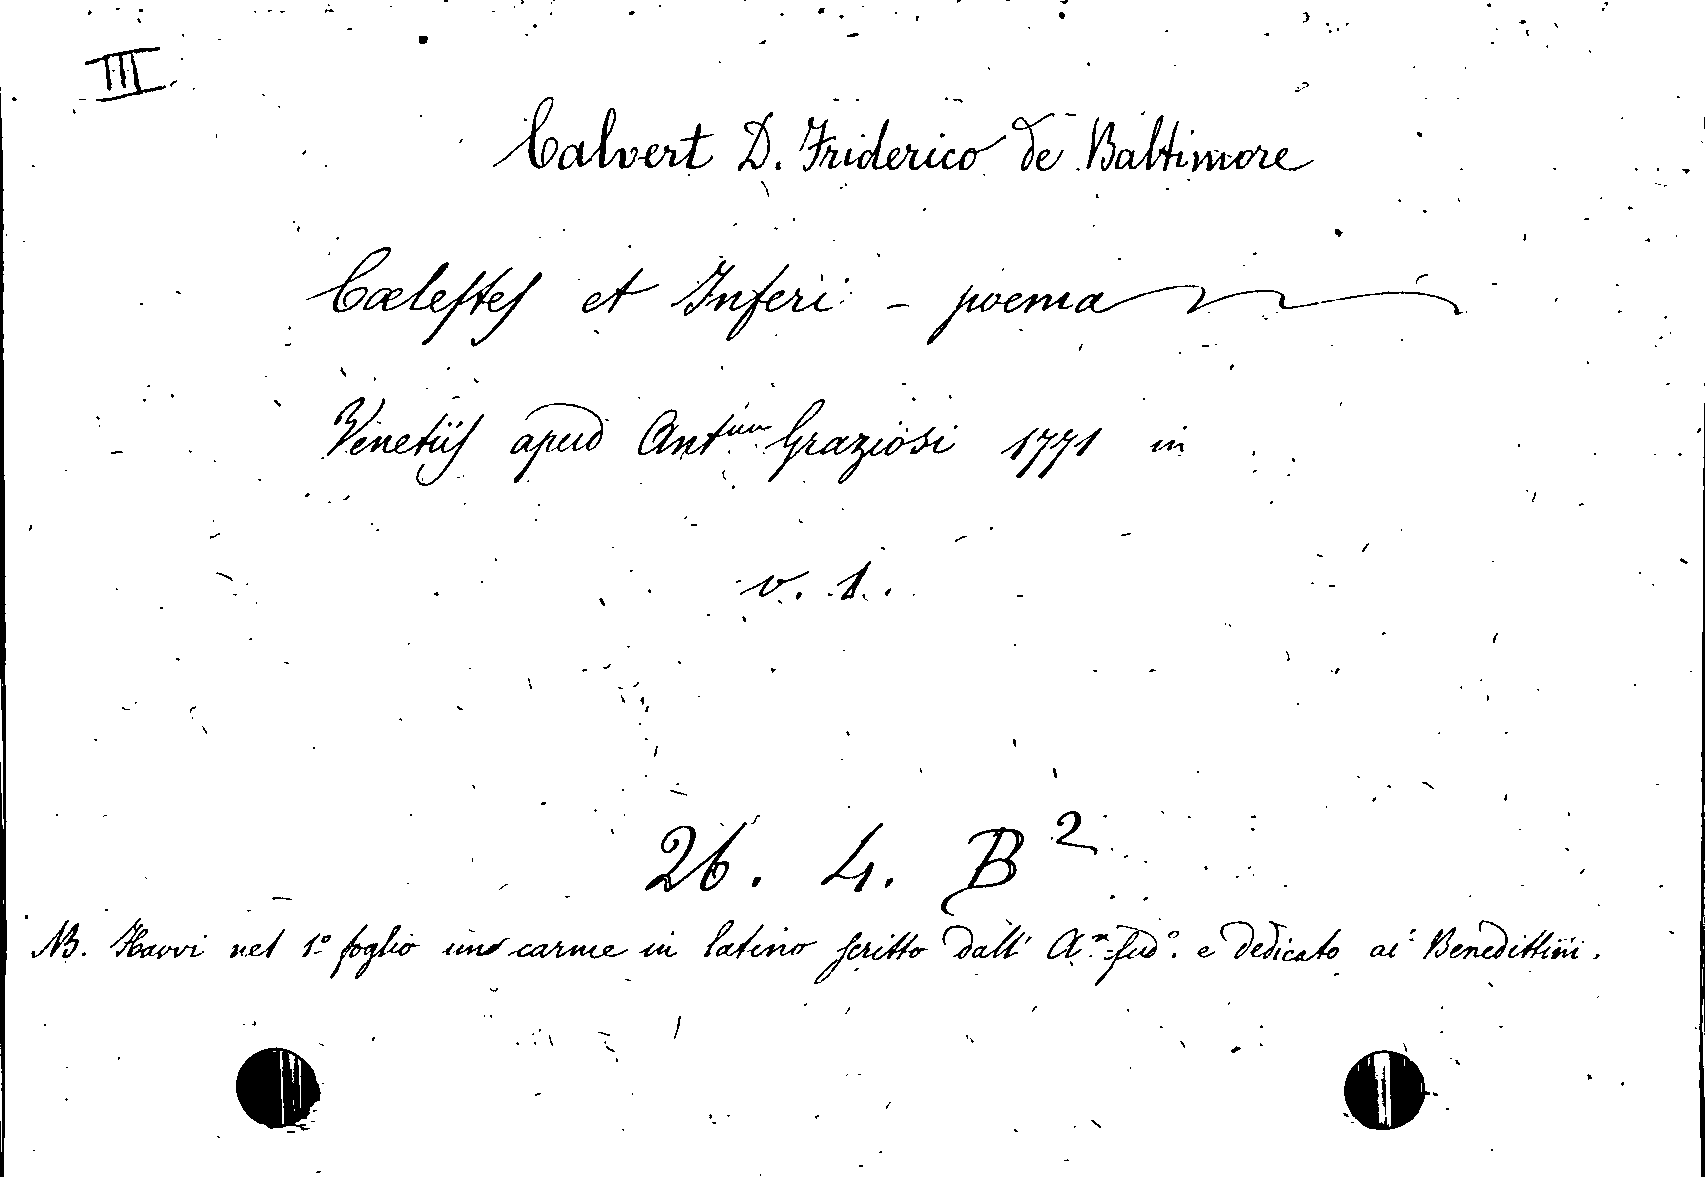 III
Calvert D. Friderico de Baltimore
Cœlestes et Inferi - poema
Venetiis apud Antium Graziosi 1771 in
v. 1.
26. 4. B2
NB. Havvi nel 1º foglio uno carme in latino scritto dall' Ar. sudº. e dedicato ai Benedittini.